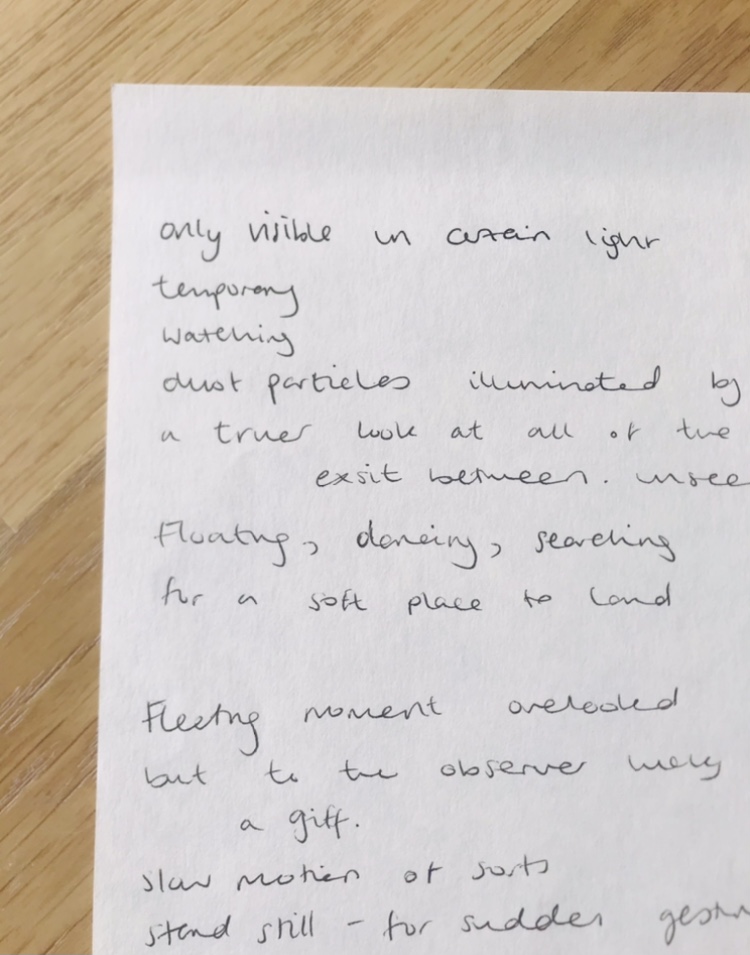 only visible in certain light
temporary
watching
dust particles illuminated by
a truer look at all of the
exsit between. unsee
Floating, dancing, searching
for a soft place to land
Fleeting moment overlooked
but to the observer
a gift.
slow motion of sorts
stand still - for sudden